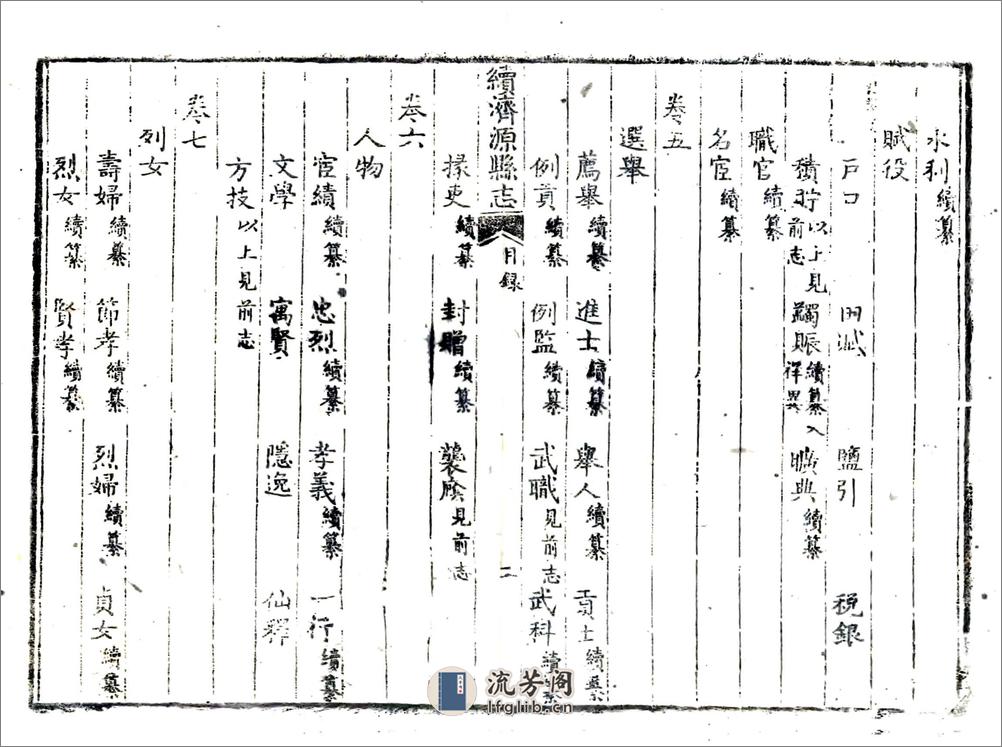 水利續纂
賦役
戶口 田減 鹽引 稅銀
積貯以上見前志 蠲賑續纂入祥異 曠典續纂
職官續纂
名宦續纂
卷五
選舉
薦舉續纂 進士續纂 舉人續纂 貢士續纂
例貢續纂 例監續纂 武職見前志 武科續
續濟源縣志 目錄 二
掾吏續纂 封贈續纂 襲廕見前志
卷六
人物
宦績續纂 忠烈續纂 孝義續纂 一行續纂
文學 寓賢 隱逸 仙釋
方技以上見前志
卷七
列女
壽婦續纂 節孝續纂 烈婦續纂 貞女續纂
烈女續纂 賢孝續纂
流芳阁
lfglib.cn